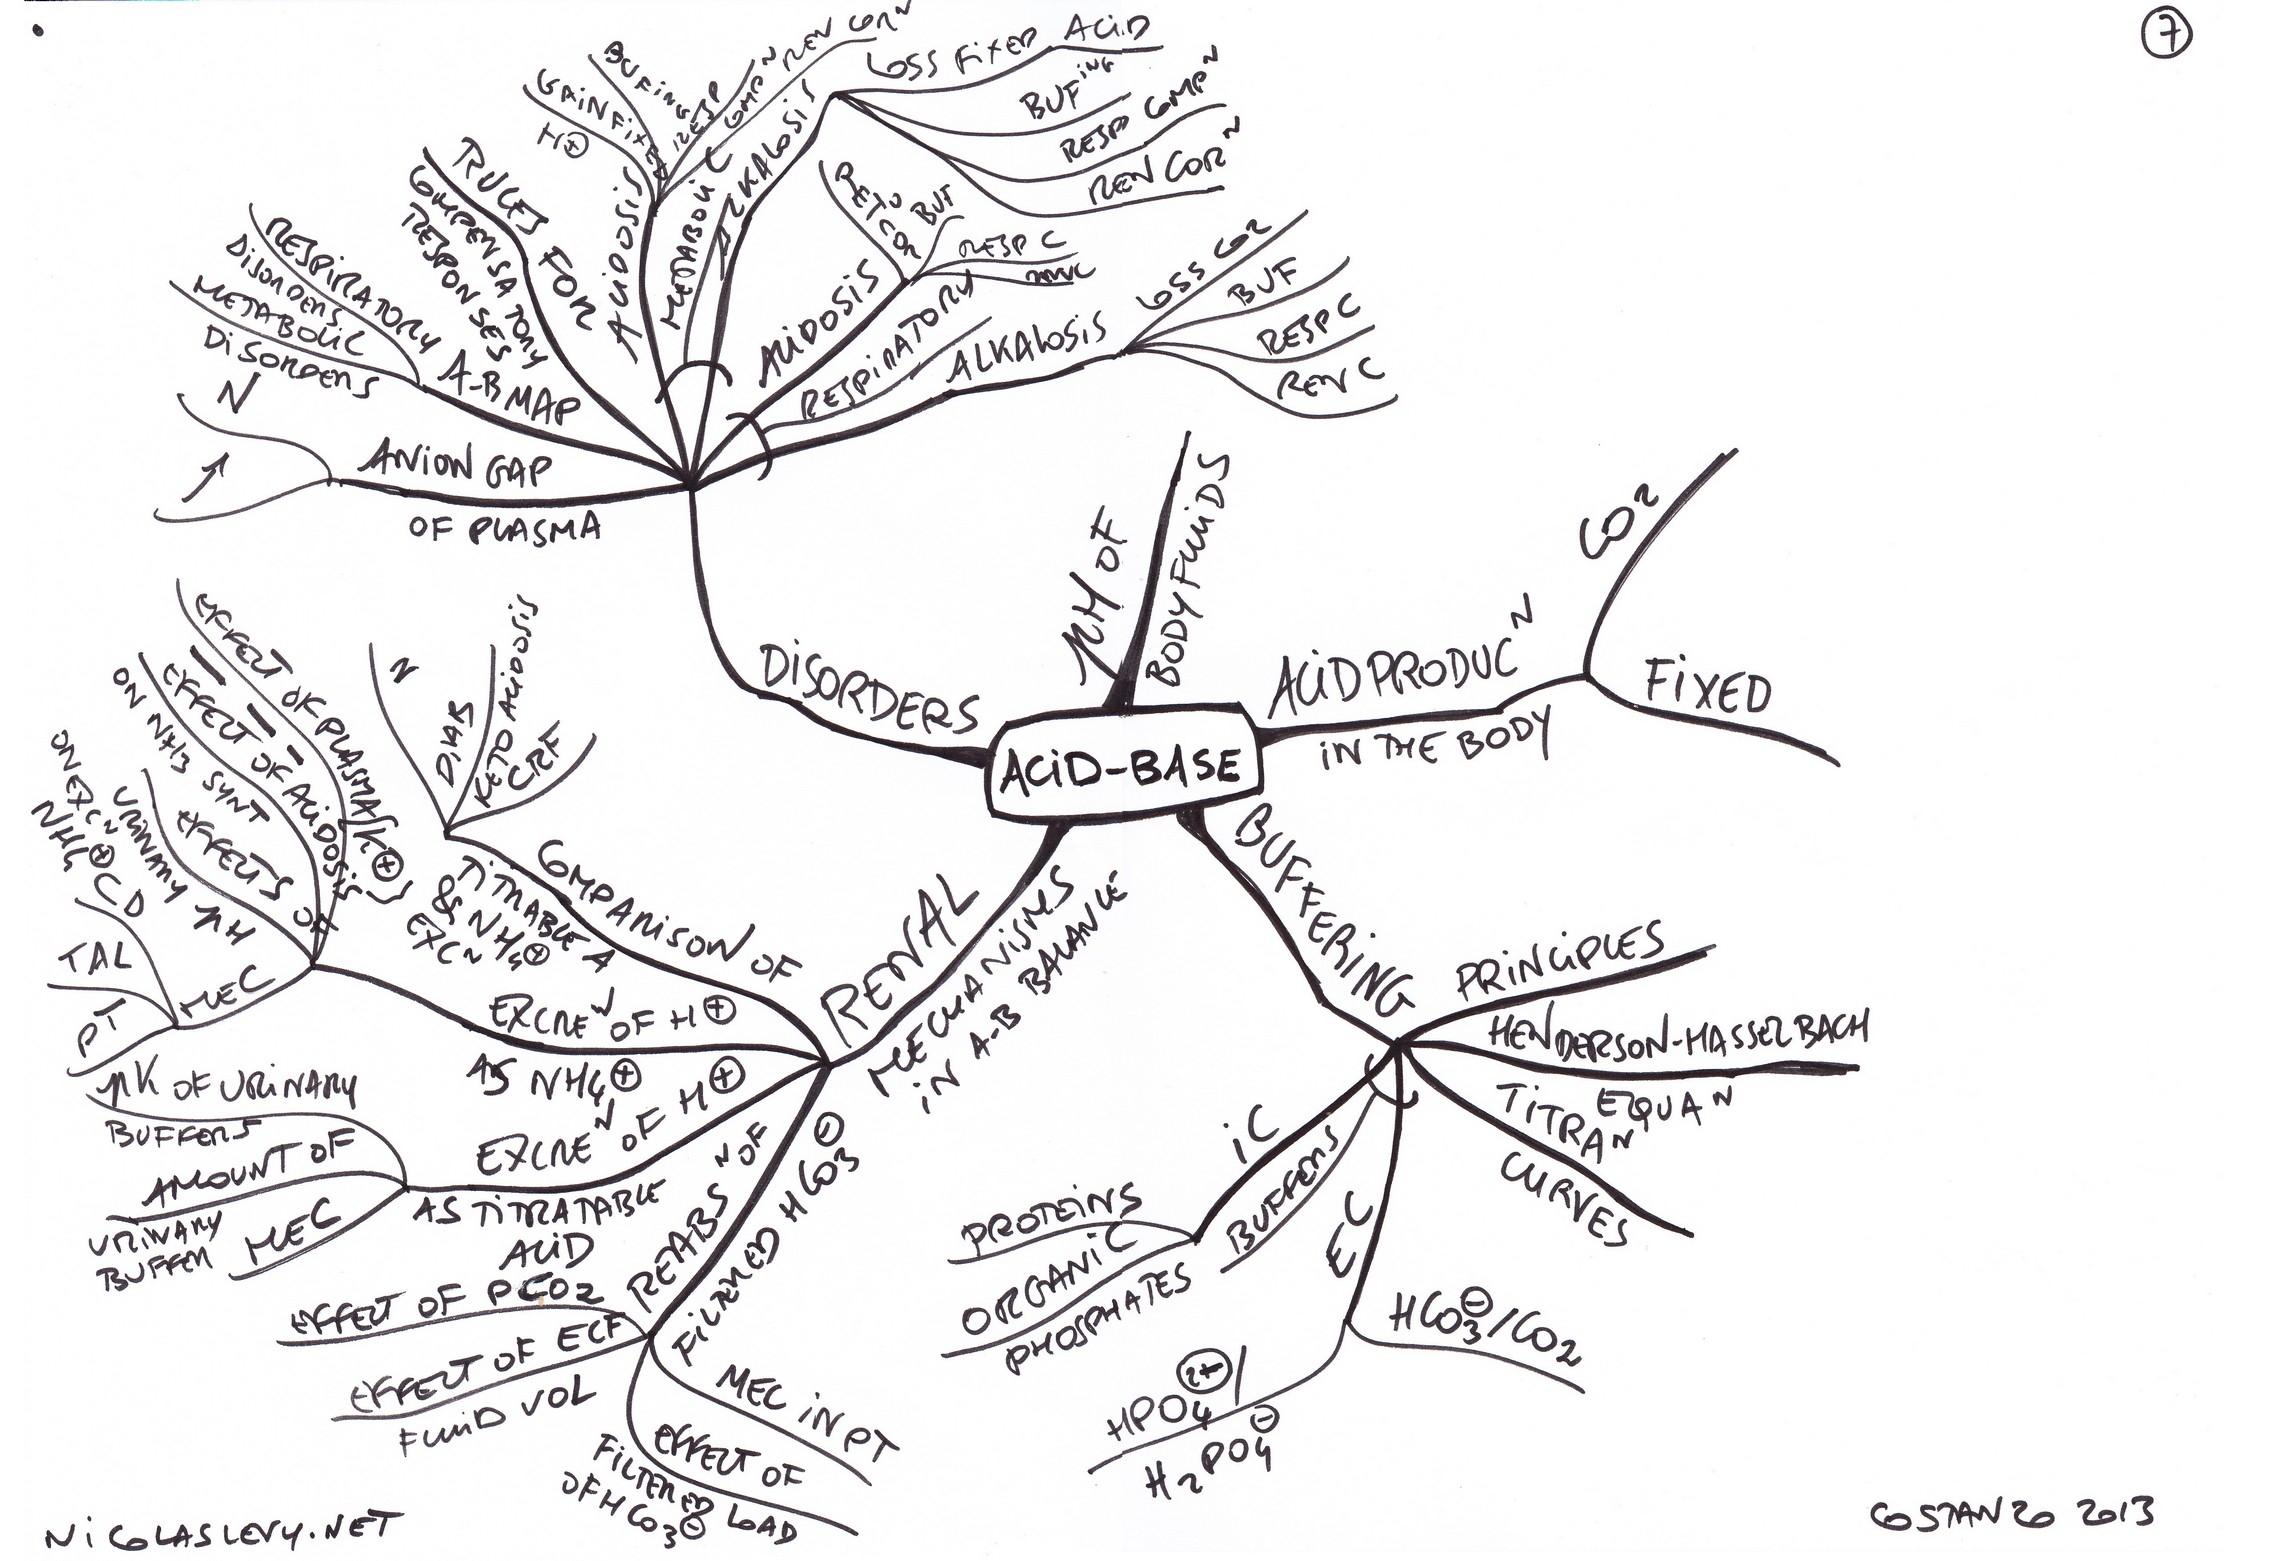 7
ACID-BASE
PH OF
BODY FLUIDS
ACID PRODUC N
IN THE BODY
CO2
FIXED
BUFFERING
PRINCIPLES
HENDERSON-HASSELBACH
EQUA N
TITRA N
CURVES
BUFFERS
EC
HCO3⊖/CO2
HPO4 2+/
H2PO4⊖
IC
PROTEINS
ORGANIC
PHOSPHATES
RENAL
MECHANISMS
IN A-B BALANCE
REABS N OF
FILTERED HCO3⊖
MEC IN PT
EFFECT OF
FILTERED LOAD
OF HCO3⊖
EFFECT OF ECF
FLUID VOL
EFFECT OF PCO2
EXCRE N OF H⊕
AS TITRATABLE
ACID
MEC
AMOUNT OF
URINARY
BUFFER
PK OF URINARY
BUFFERS
EXCRE N OF H⊕
AS NH4⊕
MEC
PT
TAL
CD
EFFECTS OF
URINARY PH
ON EXC N
NH4⊕
EFFECT OF ACIDOSIS
ON NH3 SYNT
EFFECT OF PLASMA [K⊕]
COMPARISON OF
TITRABLE A
& NH4⊕
EXC N
N
DIAB
KETOACIDOSIS
CRF
DISORDERS
ANION GAP
OF PLASMA
N
↗
A-B MAP
METABOLIC
DISORDERS
RESPIRATORY
DISORDERS
RULES FOR
COMPENSATORY
RESPONSES
METABOLIC
ACIDOSIS
GAIN FIXED
H⊕
BUFING
RESP COMP N
REN COR N
ALKALOSIS
LOSS FIXED ACID
BUF ING
RESP COMP N
REN COR N
RESPIRATORY
ACIDOSIS
CO2
BUF
RESP C
ALKALOSIS
LOSS CO2
BUF
RESP C
REN C
NICOLASLEVY.NET
COSTANZO 2013